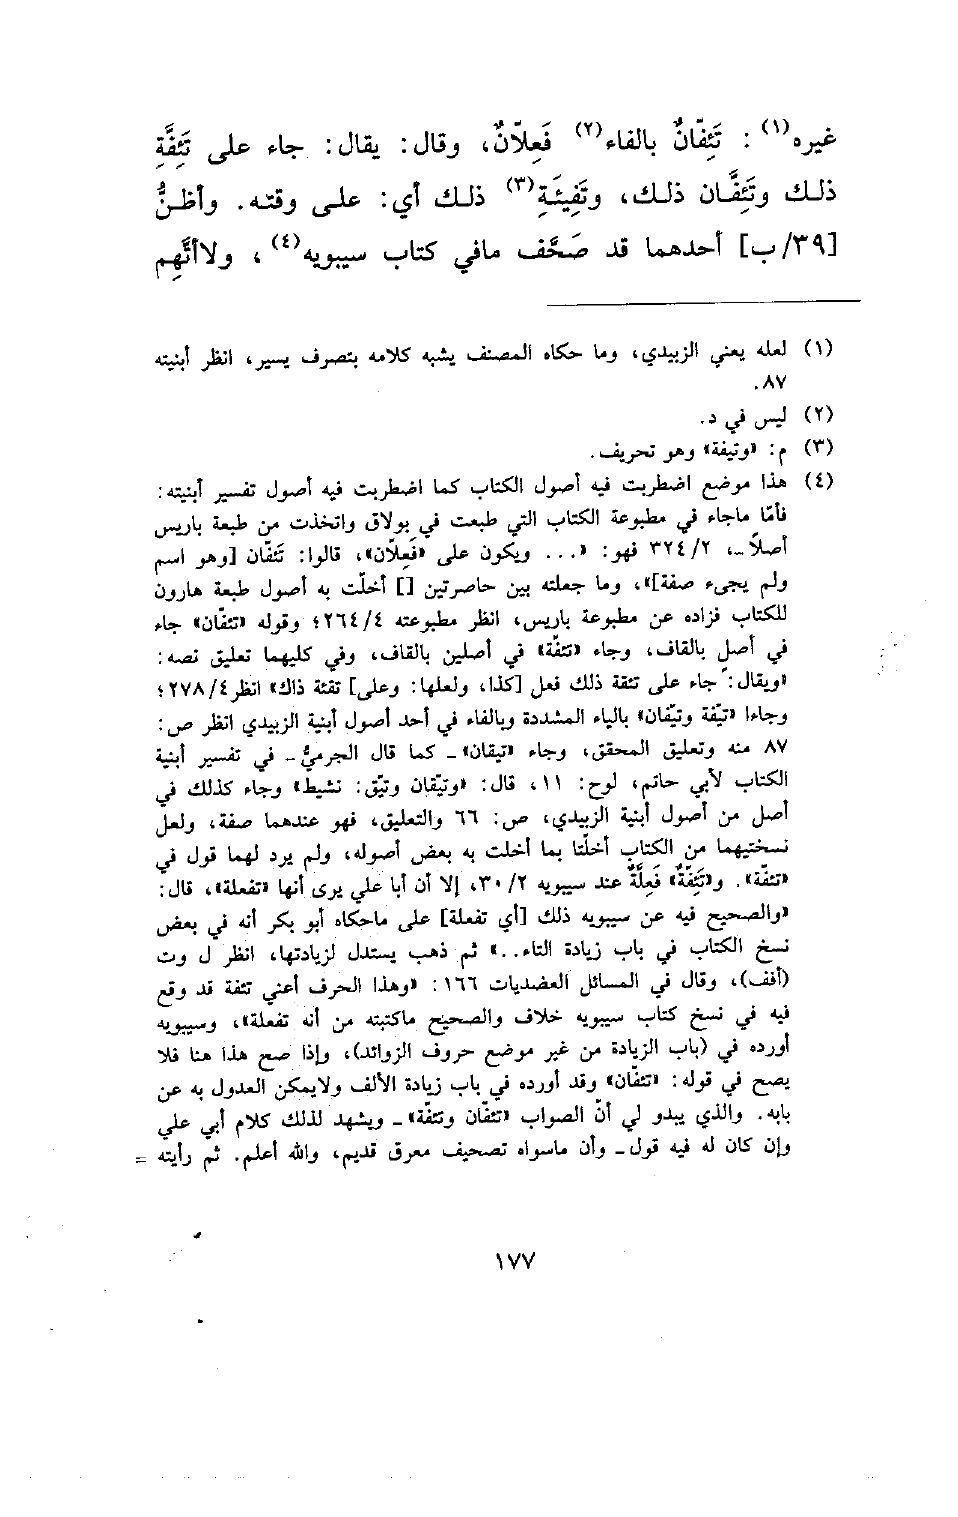 غيره(١) : تَئِفّانٌ بالفاء(٢) فَعِلّانٌ، وقال: يقال: جاء على تَئِفَّةِ
ذلك وتَئِفَّان ذلك، وتَفِيئَةِ(٣) ذلك أي: على وقته. وأظنُّ
[٣٩/ب] أحدهما قد صَحَّف مافي كتاب سيبويه(٤) ، ولاأتَّهِم
(١) لعله يعني الزبيدي، وما حكاه المصنف يشبه كلامه بتصرف يسير، انظر أبنيته
٨٧.
(٢) ليس في د.
(٣) م: «وتيفة» وهو تحريف.
(٤) هذا موضع اضطربت فيه أصول الكتاب كما اضطربت فيه أصول تفسير أبنيته:
فأمّا ماجاء في مطبوعة الكتاب التي طبعت في بولاق واتخذت من طبعة باريس
أصلاً ــ، ٣٢٤/٢ فهو: «... ويكون على «فَعِلّان»، قالوا: تَئفّان [وهو اسم
ولم يجىء صفة]»، وما جعلته بين حاصرتين [] أخلّت به أصول طبعة هارون
للكتاب فزاده عن مطبوعة باريس، انظر مطبوعته ٢٦٤/٤؛ وقوله «تئفّان» جاء
في أصل بالقاف، وجاء «تئفّة» في أصلين بالقاف، وفي كليهما تعليق نصه:
«ويقال: جاء على تئفة ذلك فعل [كذا، ولعلها: وعلى] تفئة ذاك» انظر ٢٧٨/٤؛
وجاءا «تيّفة وتيّفان» بالياء المشددة وبالفاء في أحد أصول أبنية الزبيدي انظر ص:
٨٧ منه وتعليق المحقق، وجاء «تيقان» ــ كما قال الجرميُّ ــ في تفسير أبنية
الكتاب لأبي حاتم، لوح: ١١، قال: «وتيّقان وتيّق: نشيط» وجاء كذلك في
أصل من أصول أبنية الزبيدي، ص: ٦٦ والتعليق، فهو عندهما صفة، ولعل
نسختيهما من الكتاب أخلّتا بما أخلت به بعض أصوله، ولم يرد لهما قول في
«تئفّة». و«تَئِفّةٌ» فَعِلَّةٌ عند سيبويه ٣٠/٢، إلا أن أبا علي يرى أنها «تفعلة»، قال:
«والصحيح فيه عن سيبويه ذلك [أي تفعلة] على ماحكاه أبو بكر أنه في بعض
نسخ الكتاب في باب زيادة التاء..» ثم ذهب يستدل لزيادتها، انظر ل وت
(أفف)، وقال في المسائل العضديات ١٦٦: «وهذا الحرف أعني تئفة قد وقع
فيه في نسخ كتاب سيبويه خلاف والصحيح ماكتبته من أنه تفعلة»، وسيبويه
أورده في (باب الزيادة من غير موضع حروف الزوائد)، وإذا صح هذا هنا فلا
يصح في قوله: «تئفّان» وقد أورده في باب زيادة الألف ولايمكن العدول به عن
بابه. والذي يبدو لي أنّ الصواب «تئفّان وتئفّة» ــ ويشهد لذلك كلام أبي علي
وإن كان له فيه قول ــ وأن ماسواه تصحيف معرق قديم، والله أعلم. ثم رأيته =
١٧٧